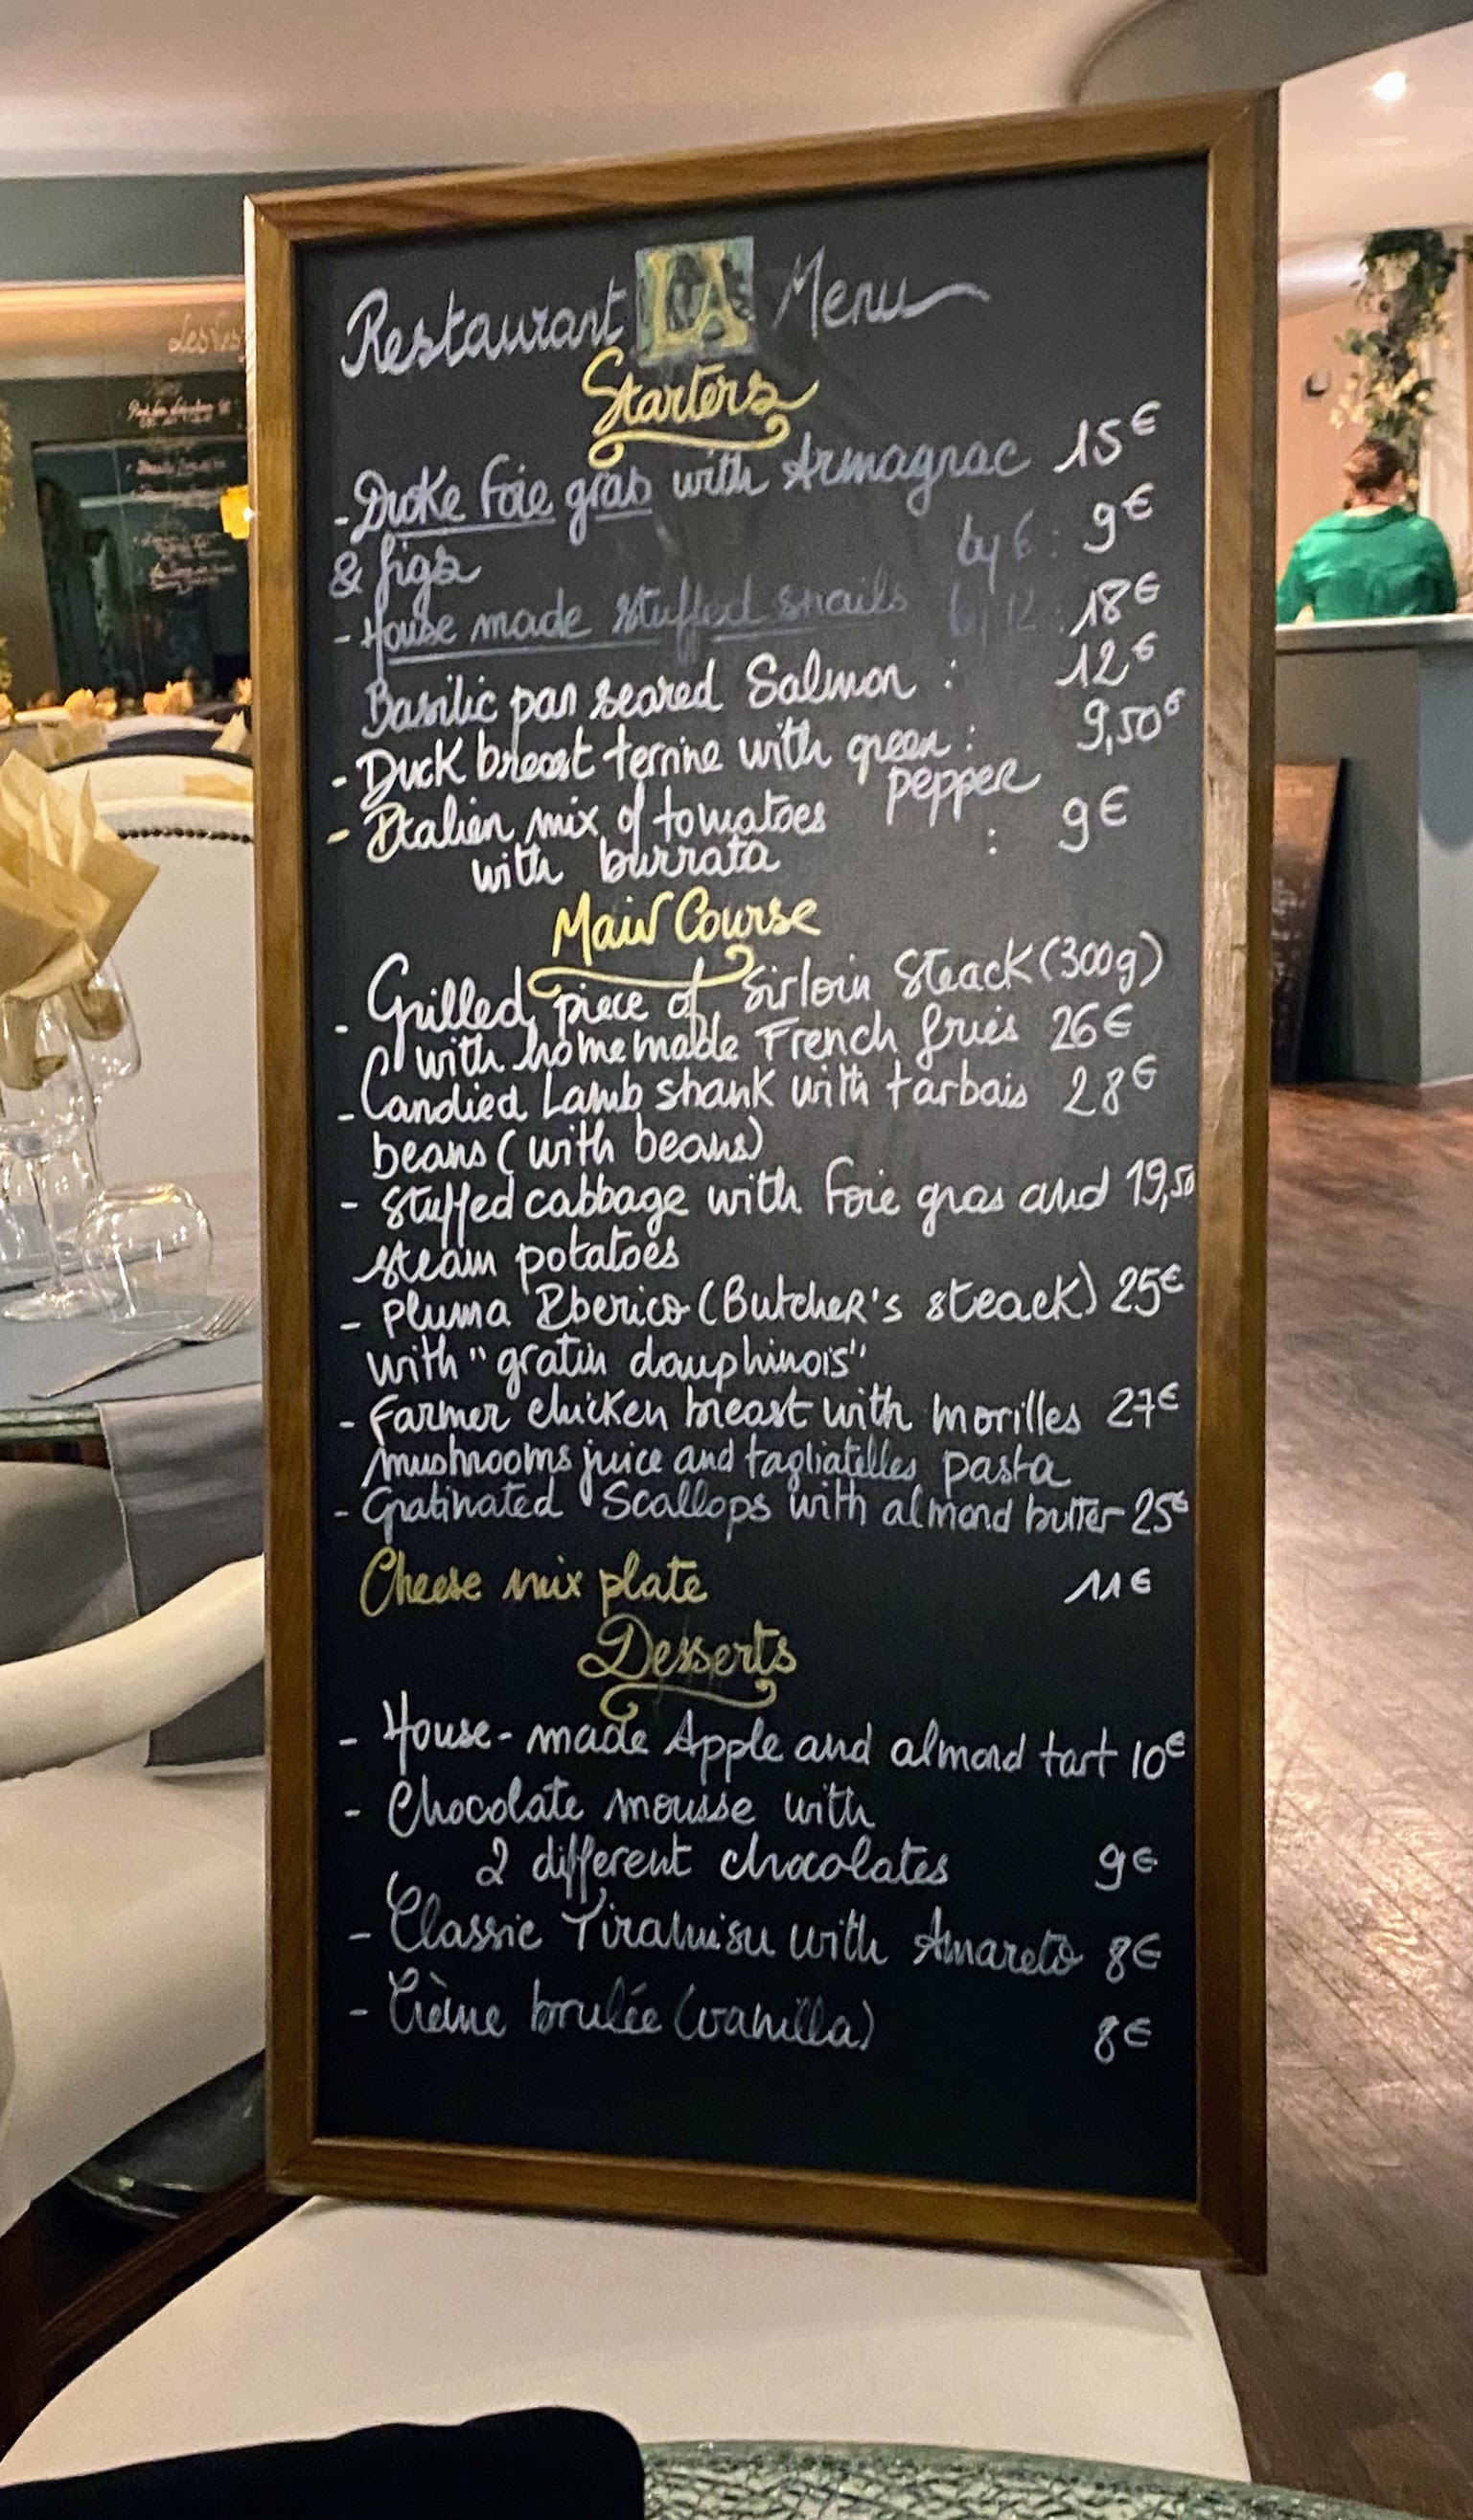 Restaurant LA Menu
Starters
- Ducke foie gras with Armagnac 15€
& figs
by 6: 9€
- House made stuffed snails by 12: 18€
Basilic pan seared Salmon : 12€
- Duck breast terrine with green : 9,50€
pepper
- Italien mix of tomatoes
with burrata : 9€
Main Course
- Grilled piece of Sirloin Steack (300g)
with homemade French fries 26€
- Candied Lamb shank with tarbais 28€
beans (with beans)
- Stuffed cabbage with foie gras and 19,50
steam potatoes
- Pluma Iberico (Butcher's steack) 25€
with "gratin dauphinois"
- Farmer chicken breast with morilles 27€
mushrooms juice and tagliatelles pasta
- Gratinated Scallops with almond butter 25€
Cheese mix plate 11€
Desserts
- House-made Apple and almond tart 10€
- Chocolate mousse with
2 different chocolates 9€
- Classic Tiramisu with Amareto 8€
- Crème brulée (vanilla) 8€